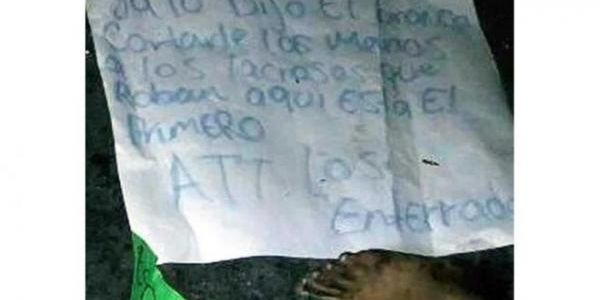 Ya lo Dijo El
Cortarle las Manos
A los lacrosos que
Roban aqui Esta El
PRiMERO
ATT. Los
Enterrado